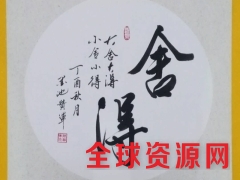 舍得
大舍大得
小舍小得
丁酉秋月
全球资源网